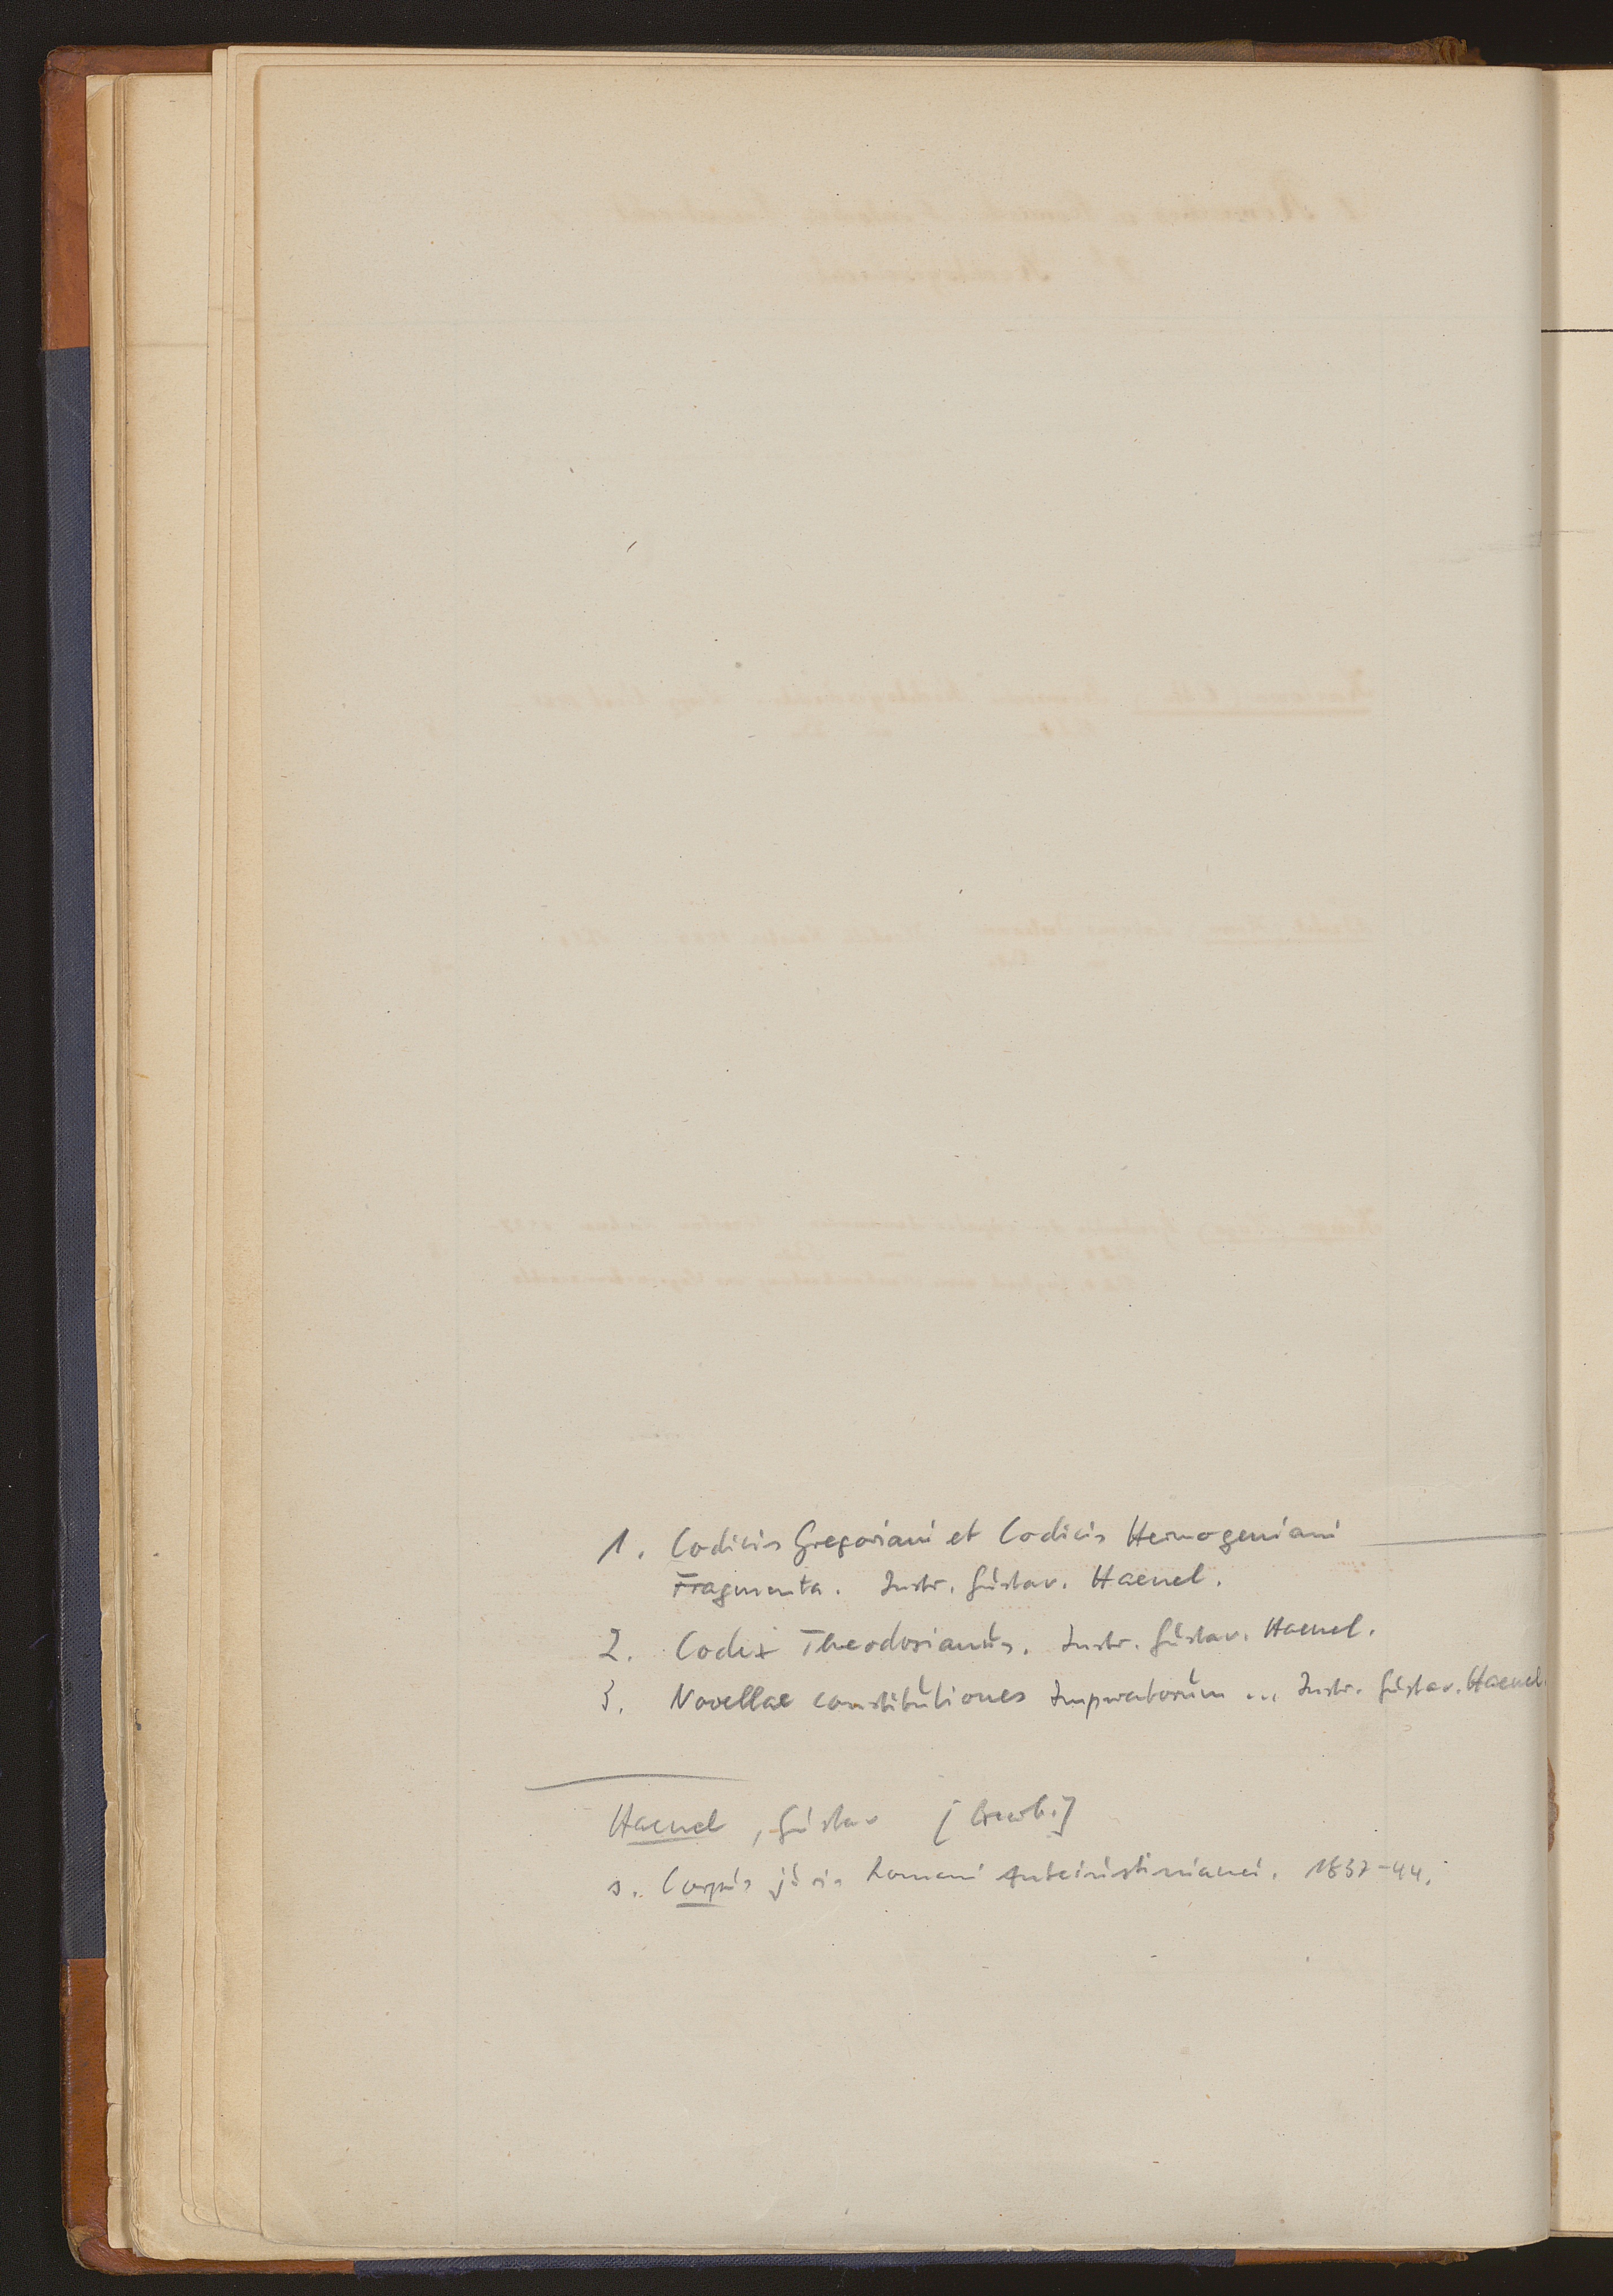 1. Codicis Gregoriani et Codicis Hermogeniani
Fragmenta. Instr. Gustav. Haenel.
2. Codex Theodosianus. Instr. Gustav. Haenel.
3. Novellae constitutiones Imperatorum ... Instr. Gustav. Haenel.
Haenel, Gustav
s. Corpus juris Romani Anteiustiniani. 1837-44.